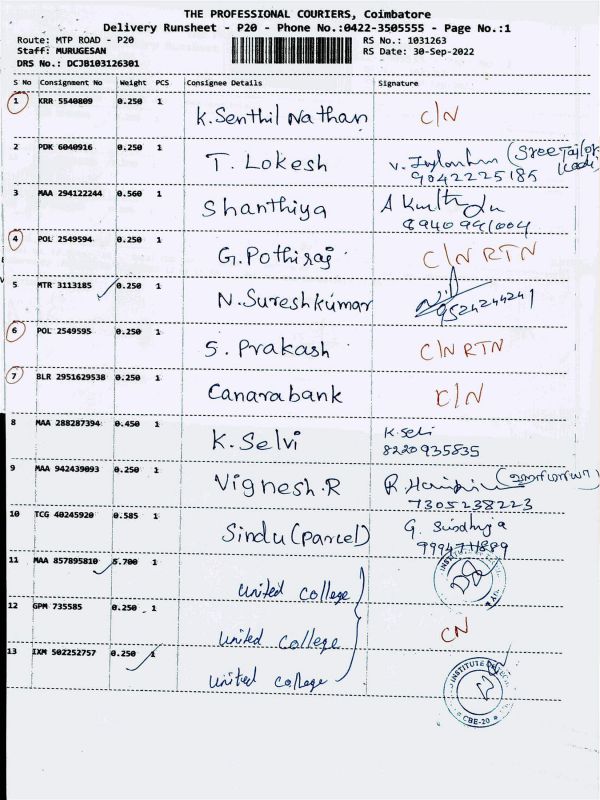 THE PROFESSIONAL COURIERS, Coimbatore
Delivery Runsheet - P20 - Phone No.:0422-3505555 - Page No.:1
Route: MTP ROAD - P20 RS No.: 1031263
Staff: MURUGESAN RS Date: 30-Sep-2022
DRS No.: DCJB103126301
S No Consignment No Weight PCS Consignee Details Signature
1 KRR 5540809 0.250 1 K. Senthil Nathan C/N
2 PDK 6040916 0.250 1 T. Lokesh V. (Sree Tailor
9042225185
3 MAA 294122244 0.560 1 Shanthiya A
8940991004
4 POL 2549594 0.250 1 G. Pothiraj C/N RTN
5 MTR 3113185 0.250 1 N. Sureshkumar
9524244241
6 POL 2549595 0.250 1 S. Prakash C/N RTN
7 BLR 2951629538 0.250 1 Canara bank C/N
8 MAA 288287394 0.450 1 K. Selvi K. Selvi
8220935835
9 MAA 942439093 0.250 1 Vignesh.R R.
7305238223
10 TCG 40245920 0.585 1 Sindu (Parcel) G. Sindhuja
11 MAA 857895810 5.700 1 United College
12 GPM 735585 0.250 1 United College CN
13 IXM 502252757 0.250 1 United College
INSTITUTE OF TECH
CBE-20